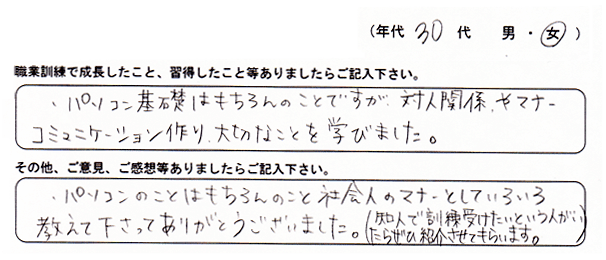 （年代 30 代 男・女）
職業訓練で成長したこと、習得したこと等ありましたらご記入下さい。
・パソコン基礎はもちろんのことですが、対人関係、やマナー
コミュニケーション作り、大切なことを学びました。
その他、ご意見、ご感想等ありましたらご記入下さい。
・パソコンのことはもちろんのこと社会人のマナーとしていろいろ
教えて下さってありがとうございました。(知人で訓練受けたいという人がい
たらぜひ紹介させてもらいます。)